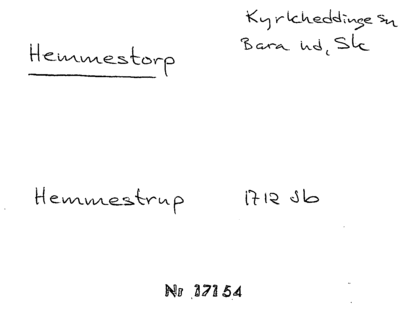 Kyrkheddinge sn
Hemmestorp Bara hd, Sk
Hemmestrup 1712 Jb
Nr 17154